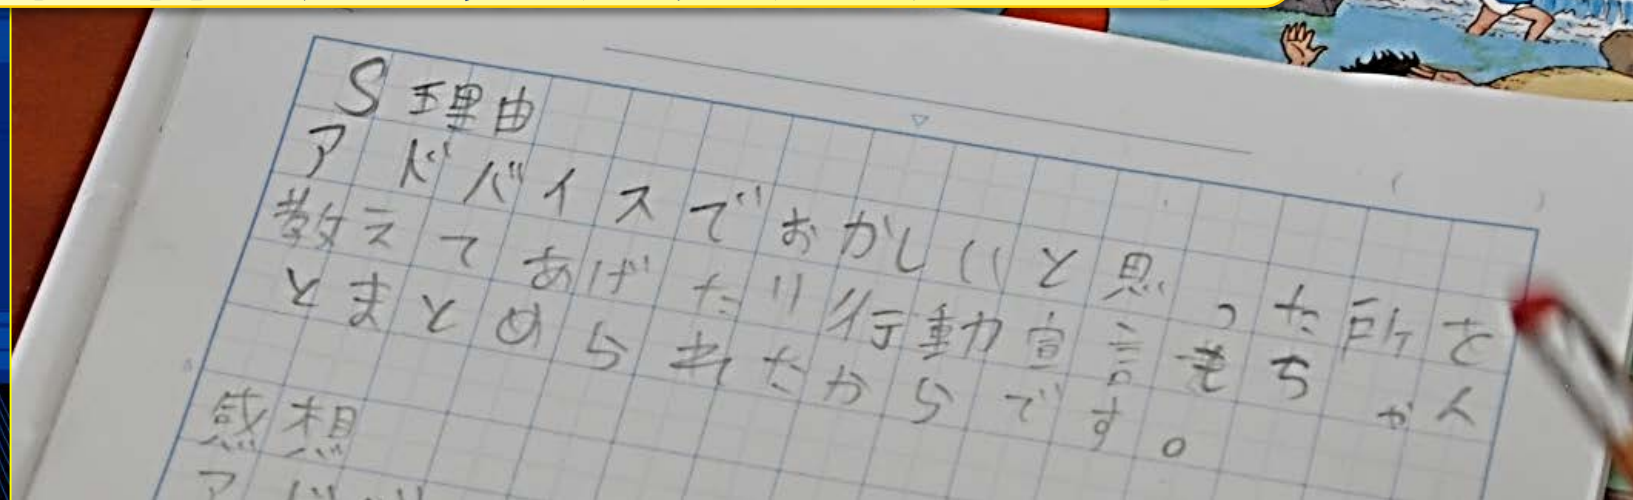 S 理由
アドバイスでおかしいと思った所を
教えてあげたり行動宣言もちゃん
とまとめられたからです。
感想